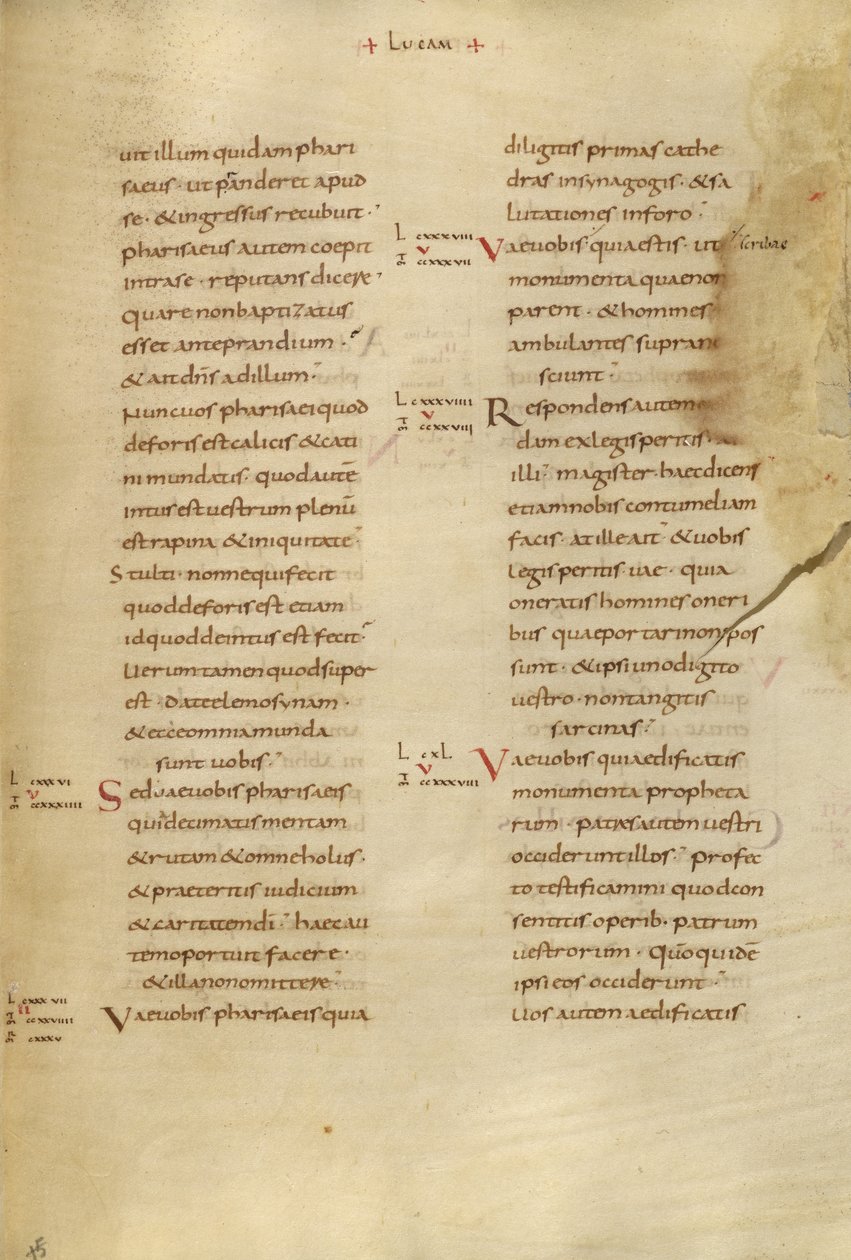 + LUCAM +
uit illum quidam phari
saeus · ut pranderet apud
se · & ingressus recubuit ·
pharisaeus autem coepit
intra se · reputans dicere
quare non baptizatus
esset ante prandium ·
& ait dn̄s ad illum ·
Nunc uos pharisaei quod
deforis est calicis & cati
ni mundatis · quod autē
intus est uestrum plenū
est rapina & iniquitate ·
Stulti · nonne qui fecit
quod deforis est etiam
id quod deintus est fecit ·
Uerumtamen quod super
est · date elemosynam ·
& ecce omnia munda
sunt uobis ·
L cxxxvi
V
ccxxxiiii
Sed uae uobis pharisaeis
qui decimatis mentam
& rutam & omne holus ·
& praeteritis iudicium
& caritatem dī · haec au
tem oportuit facere ·
& illa non omittere ·
L cxxxvii
II
ccxxviiii
cxxxv
Vae uobis pharisaeis quia
diligitis primas cathe
dras in synagogis · & sa
lutationes in foro ·
L cxxxviii
V
ccxxxvii
Vae uobis · quia estis · ut scribae
monumenta quae non
parent · & homines
ambulantes supra ne
sciunt ·
L cxxxviiii
V
ccxxxviii
Respondens autem
dam ex legis peritis ·
illi · magister · haec dicens
etiam nobis contumeliam
facis · at ille ait · & uobis
legis peritis · uae · quia
oneratis homines oneri
bus quae portari non pos
sunt · & ipsi uno digito
uestro · non tangitis
sarcinas ·
L cxL
V
ccxxxviii
Vae uobis quia edificatis
monumenta propheta
rum · patres autem uestri
occiderunt illos · profec
to testificamini quod con
sentitis operib · patrum
uestrorum · Quō quidē
ipsi eos occiderunt ·
Uos autem aedificatis
45